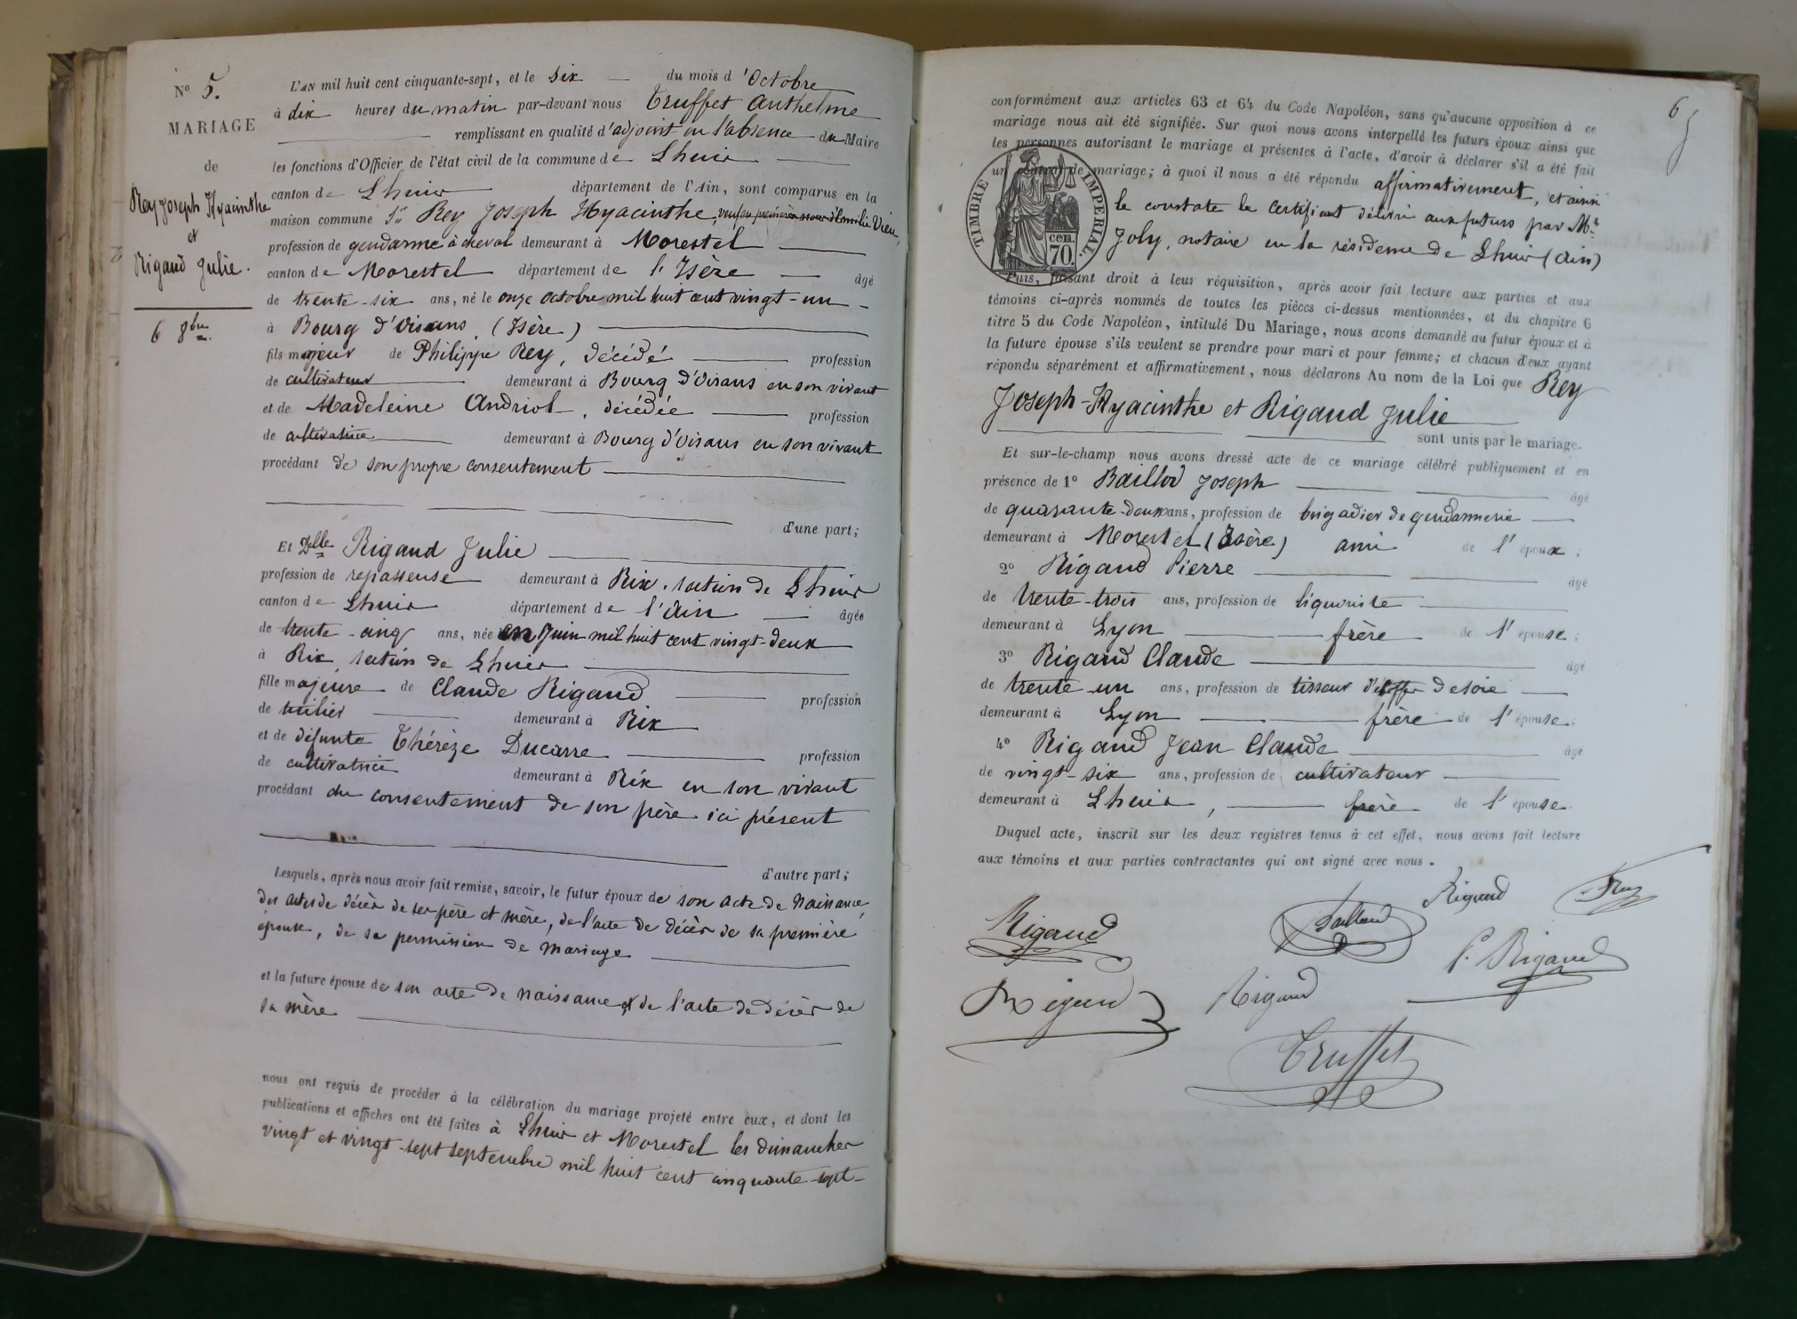 N° 5.
MARIAGE
de
Rey Joseph Hyacinthe
et
Rigaud Julie.
6 8bre
L'AN mil huit cent cinquante-sept, et le six du mois d'Octobre
à dix heures du matin par-devant nous Truffet Anthelme
remplissant en qualité d'adjoint en l'absence du Maire
les fonctions d'Officier de l'état civil de la commune de Lhuis
canton de Lhuis département de l'Ain, sont comparus en la
maison commune Sr Rey Joseph Hyacinthe, veuf en premières noces d'Emilie
profession de gendarme à cheval demeurant à Morestel
canton de Morestel département de l'Isère âgé
de trente-six ans, né le onze octobre mil huit cent vingt-un
à Bourg d'Oisans (Isère)
fils majeur de Philippe Rey, décédé profession
de cultivateur demeurant à Bourg d'Oisans en son vivant
et de Madeleine Andriol, décédée profession
de cultivatrice demeurant à Bourg d'Oisans en son vivant
procédant de son propre consentement
d'une part;
Et Delle Rigaud Julie
profession de repasseuse demeurant à Rix, section de Lhuis
canton de Lhuis département de l'Ain âgée
de trente-cinq ans, née en Juin mil huit cent vingt-deux
à Rix, section de Lhuis
fille majeure de Claude Rigaud profession
de tuilier demeurant à Rix
et de défunte Thérèze Ducarre profession
de cultivatrice demeurant à Rix en son vivant
procédant du consentement de son père ici présent
d'autre part;
Lesquels, après nous avoir fait remise, savoir, le futur époux de son acte de Naissance,
des actes de décès de ses père et mère, de l'acte de décès de sa première
épouse, de sa permission de mariage
et la future épouse de son acte de naissance et de l'acte de décès de
sa mère
nous ont requis de procéder à la célébration du mariage projeté entre eux, et dont les
publications et affiches ont été faites à Lhuis et Morestel les dimanches
vingt et vingt-sept septembre mil huit cent cinquante-sept
6
conformément aux articles 63 et 64 du Code Napoléon, sans qu'aucune opposition à ce
mariage nous ait été signifiée. Sur quoi nous avons interpellé les futurs époux ainsi que
les personnes autorisant le mariage et présentes à l'acte, d'avoir à déclarer s'il a été fait
un contrat de mariage; à quoi il nous a été répondu affirmativement, et ainsi
le constate le certificat délivré aux futurs par Me
Joly, notaire en la résidence de Lhuis (Ain)
TIMBRE IMPERIAL.
cen.
70.
Puis, faisant droit à leur réquisition, après avoir fait lecture aux parties et aux
témoins ci-après nommés de toutes les pièces ci-dessus mentionnées, et du chapitre 6
titre 5 du Code Napoléon, intitulé Du Mariage, nous avons demandé au futur époux et à
la future épouse s'ils veulent se prendre pour mari et pour femme; et chacun d'eux ayant
répondu séparément et affirmativement, nous déclarons Au nom de la Loi que Rey
Joseph-Hyacinthe et Rigaud Julie
sont unis par le mariage.
Et sur-le-champ nous avons dressé acte de ce mariage célébré publiquement et en
présence de 1° Baillod Joseph âgé
de quarante-deux ans, profession de brigadier de gendarmerie
demeurant à Morestel (Isère) ami de l'époux;
2° Rigaud Pierre âgé
de trente-trois ans, profession de liquoriste
demeurant à Lyon frère de l'épouse;
3° Rigaud Claude âgé
de trente-un ans, profession de tisseur d'étoffes de soie
demeurant à Lyon frère de l'épouse;
4° Rigaud Jean Claude âgé
de vingt-six ans, profession de cultivateur
demeurant à Lhuis, frère de l'épouse.
Duquel acte, inscrit sur les deux registres tenus à cet effet, nous avons fait lecture
aux témoins et aux parties contractantes qui ont signé avec nous.
Rigaud Rey
Rigaud Baillod
P. Rigaud
Rigaud Rigaud
Truffet